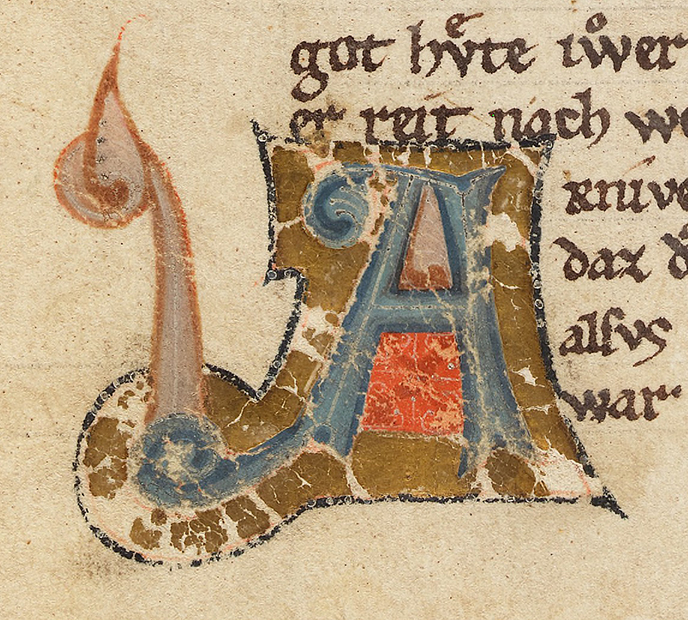 got hv̊te iwͦer
er reit nach we
A
daz dͦ
alsvs
war